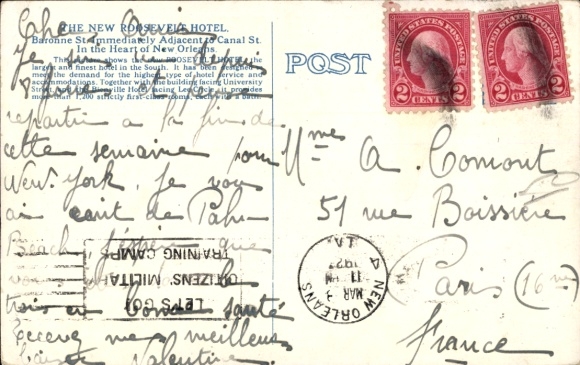 THE NEW ROOSEVELT HOTEL.
Baronne St. Immediately Adjacent to Canal St.
In the Heart of New Orleans.
This view shows the new ROOSEVELT HOTEL, the
largest and finest hotel in the South. It has been designed
meet the demand for the highest type of hotel service and
accommodations. Together with the building facing University
Street, and the Bienville Hotel facing Lee Circle, it provides
more than 1,200 strictly first-class rooms, each with a bath.
Je suis
repartir à la fin de
cette semaine pour
New-York, Je vous
ai écrit de Palm
Beach, j'espère que
vous
bonne santé
Recevez mes meilleurs
Valentine.
POST
UNITED STATES POSTAGE
2 CENTS 2
UNITED STATES POSTAGE
2 CENTS 2
Mme A. Comont
51 rue Boissière
Paris (16me)
France
NEW ORLEANS
LA.
MAR
11
4
LET'S GO!
CITIZENS MILITARY
TRAINING CAMPS